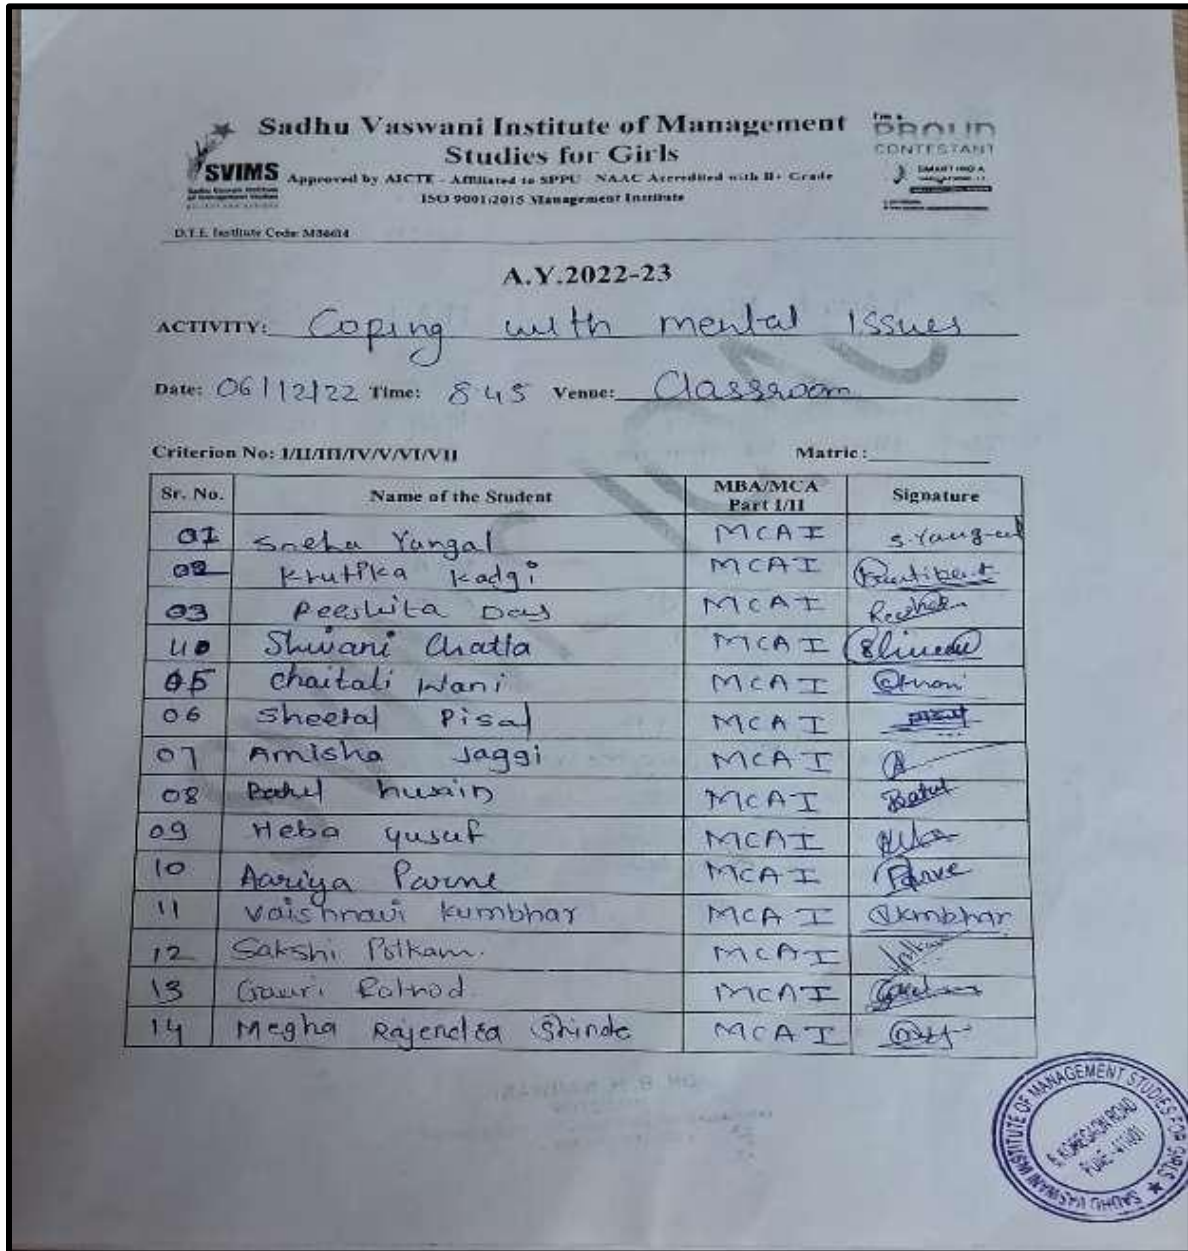 Sadhu Vaswani Institute of Management
Studies for Girls
SVIMS
Approved by AICTE - Affiliated to SPPU NAAC Accredited with B+ Grade
ISO 9001:2015 Management Institute
I'm a
PROUD
CONTESTANT
SMART INDIA
D.T.E. Institute Code:
A.Y.2022-23
ACTIVITY: Coping with mental issues
Date: 06/12/22 Time: 8 45 Venue: Classroom
Criterion No: I/II/III/IV/V/VI/VII Matric:
Sr. No. Name of the Student MBA/MCA Part I/II Signature
01 Sneha Yangal MCA I
02 Krutika Kadgi MCA I
03 Peeshita Das MCA I
Shivani Chatla MCA I
05 Chaitali Wani MCA I
06 Sheetal Pisal MCA I
07 Amisha Jaggi MCA I
08 husain MCA I Batul
09 Heba yusuf MCA I
10 Aariya MCA I
11 Vaishnavi kumbhar MCA I
12 Sakshi MCA I
13 Gauri MCA I
14 Megha Rajendra Shinde MCA I
SADHU VASWANI INSTITUTE OF MANAGEMENT STUDIES FOR GIRLS